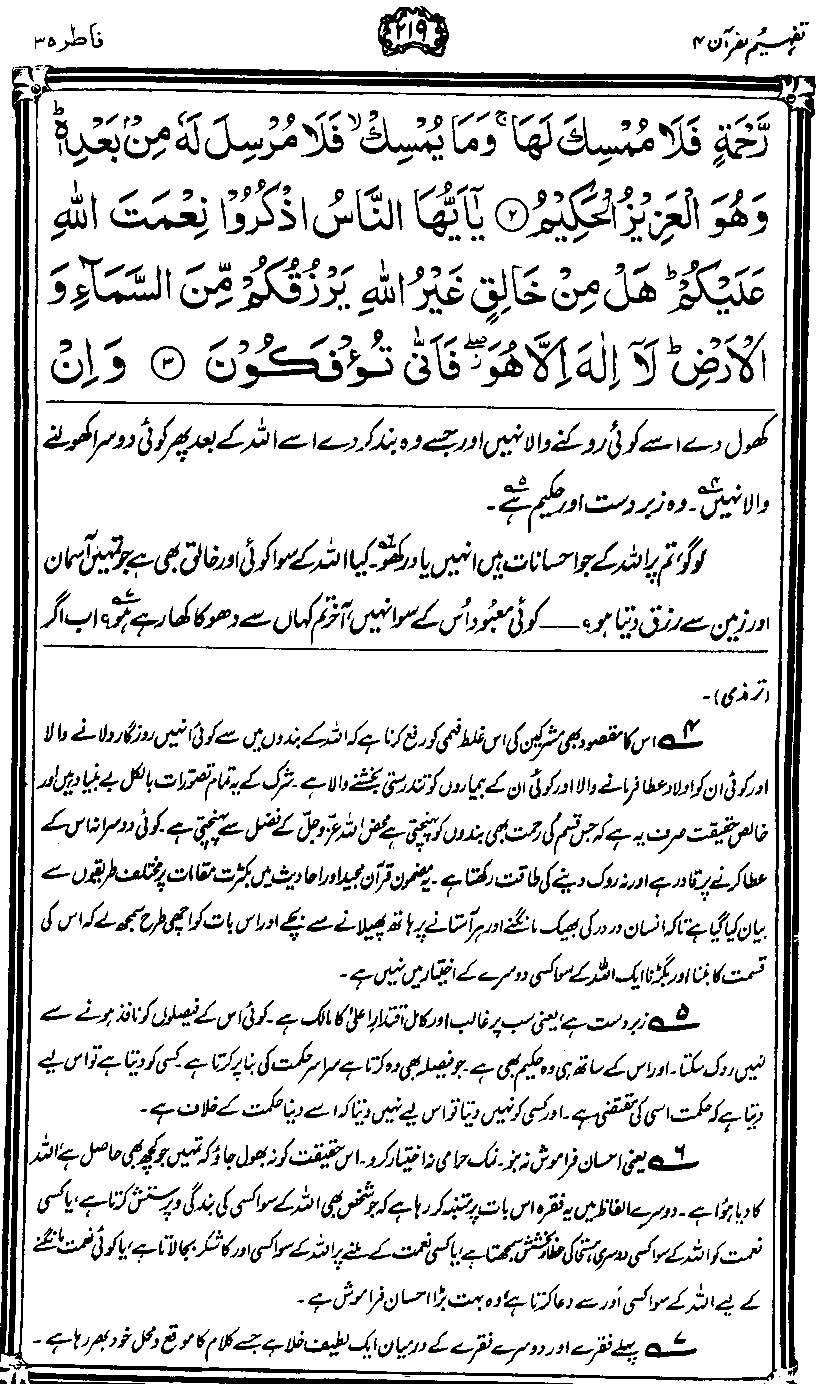 تفہیم القرآن ۴
۲۱۹
فاطر ۳۵
رَّحْمَةٍ فَلَا مُمْسِكَ لَهَا ۚ وَمَا يُمْسِكْ ۙ فَلَا مُرْسِلَ لَهٗ مِنْۢ بَعْدِهٖ ؕ
وَهُوَ الْعَزِيْزُ الْحَكِيْمُ ﴿۲﴾ يٰۤاَيُّهَا النَّاسُ اذْكُرُوْا نِعْمَتَ اللّٰهِ
عَلَيْكُمْ ؕ هَلْ مِنْ خَالِقٍ غَيْرُ اللّٰهِ يَرْزُقُكُمْ مِّنَ السَّمَآءِ وَ
الْاَرْضِ ؕ لَاۤ اِلٰهَ اِلَّا هُوَ ۖ فَاَنّٰى تُؤْفَكُوْنَ ﴿۳﴾ وَاِنْ
کھول دے اسے کوئی روکنے والا نہیں اور جسے وہ بند کر دے اسے اللہ کے بعد پھر کوئی دوسرا کھولنے
والا نہیں۴۔ وہ زبردست اور حکیم ہے۵۔
لوگو، تم پر اللہ کے جو احسانات ہیں انہیں یاد رکھو۶۔ کیا اللہ کے سوا کوئی اور خالق بھی ہے جو تمہیں آسمان
اور زمین سے رزق دیتا ہو؟ ــــ کوئی معبود اُس کے سوا نہیں، آخر تم کہاں سے دھوکا کھا رہے ہو۷؟ اب اگر
(ترمذی)۔
۴ اس کا مقصود بھی مشرکین کی اس غلط فہمی کو رفع کرنا ہے کہ اللہ کے بندوں میں سے کوئی انہیں روزگار دلانے والا
اور کوئی ان کو اولاد عطا فرمانے والا اور کوئی ان کے بیماروں کو تندرستی بخشنے والا ہے۔ شرک کے یہ تمام تصورات بالکل بے بنیاد ہیں اور
خالص حقیقت صرف یہ ہے کہ جس قسم کی رحمت بھی بندوں کو پہنچتی ہے محض اللہ عزّوجلّ کے فضل سے پہنچتی ہے۔ کوئی دوسرا نہ اس کے
عطا کرنے پر قادر ہے اور نہ روک دینے کی طاقت رکھتا ہے۔ یہ مضمون قرآن مجید اور احادیث میں بکثرت مقامات پر مختلف طریقوں سے
بیان کیا گیا ہے تاکہ انسان در در کی بھیک مانگنے اور ہر آستانے پر ہاتھ پھیلانے سے بچے اور اس بات کو اچھی طرح سمجھ لے کہ اس کی
قسمت کا بننا اور بگڑنا ایک اللہ کے سوا کسی دوسرے کے اختیار میں نہیں ہے۔
۵ زبردست ہے، یعنی سب پر غالب اور کامل اقتدارِ اعلیٰ کا مالک ہے۔ کوئی اس کے فیصلوں کو نافذ ہونے سے
نہیں روک سکتا۔ اور اس کے ساتھ ہی وہ حکیم بھی ہے۔ جو فیصلہ بھی وہ کرتا ہے سراسر حکمت کی بنا پر کرتا ہے۔ کسی کو دیتا ہے تو اس لیے
دیتا ہے کہ حکمت اسی کی مقتضی ہے۔ اور کسی کو نہیں دیتا تو اس لیے نہیں دیتا کہ اسے دینا حکمت کے خلاف ہے۔
۶ یعنی احسان فراموش نہ بنو۔ نمک حرامی نہ اختیار کرو۔ اس حقیقت کو نہ بھول جاؤ کہ تمہیں جو کچھ بھی حاصل ہے، اللہ
کا دیا ہوا ہے۔ دوسرے الفاظ میں یہ فقرہ اس بات پر متنبہ کر رہا ہے کہ جو شخص بھی اللہ کے سوا کسی کی بندگی و پرستش کرتا ہے، یا کسی
نعمت کو اللہ کے سوا کسی دوسری ہستی کی عطا و بخشش سمجھتا ہے، یا کسی نعمت کے ملنے پر اللہ کے سوا کسی اور کا شکر بجا لاتا ہے، یا کوئی نعمت مانگنے
کے لیے اللہ کے سوا کسی اور سے دعا کرتا ہے، وہ بہت بڑا احسان فراموش ہے۔
۷ پہلے فقرے اور دوسرے فقرے کے درمیان ایک لطیف خلا ہے جسے کلام کا موقع و محل خود بھر رہا ہے۔